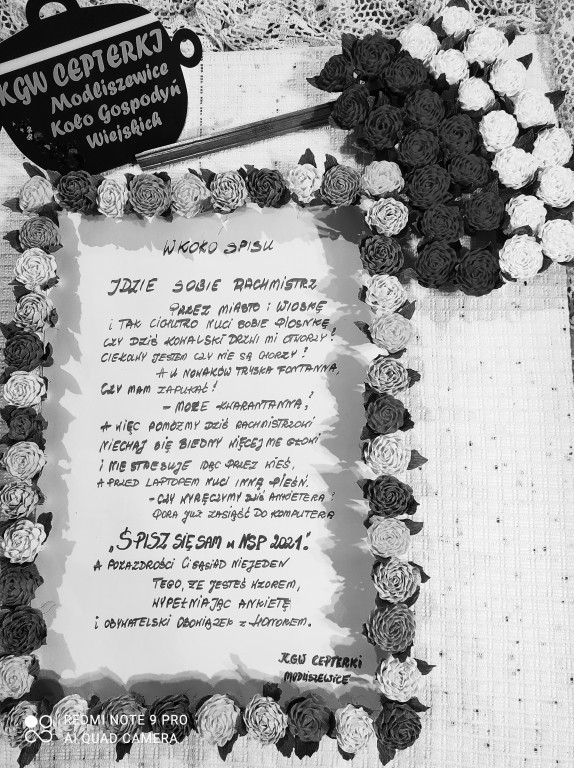 KGW CEPTERKI
Modliszewice
Koło Gospodyń
Wiejskich
W KOŁO SPISU
IDZIE SOBIE RACHMISTRZ
PRZEZ MIASTO i WIOSKĘ
i TAK CICHUTKO NUCI SOBIE PIOSNKĘ
CZY DZIŚ KOWALSKI DRZWI MI OTWORZY?
CIEKAWY JESTEM CZY NIE SĄ CHORZY?
A U NOWAKÓW TRYSKA FONTANNA,
CZY MAM ZAPUKAĆ!
- MOŻE KWARANTANNA?
A WIĘC POMÓŻMY DZIŚ RACHMISTRZOWI
NIECHAJ SIĘ BIEDNY WIĘCEJ NIE GŁOWI
i NIE STRESUJE IDĄC PRZEZ WIEŚ,
A PRZED LAPTOPEM NUCI INNĄ PIEŚŃ.
- CZY WYRĘCZYMY DZIŚ ANKIETERA?
PORA JUŻ ZASIĄŚĆ DO KOMPUTERA
„SPISZ SIĘ SAM w NSP 2021".
A POZAZDROŚCI CI SĄSIAD NIEJEDEN
TEGO, ŻE JESTEŚ WZOREM,
WYPEŁNIAJĄC ANKIETĘ
i OBYWATELSKI OBOWIĄZEK z HONOREM.
KGW CEPTERKI
MODLISZEWICE
REDMI NOTE 9 PRO
AI QUAD CAMERA